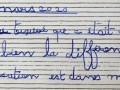 mars 2020
toujours que c'était
bien la différen
cation est dans m